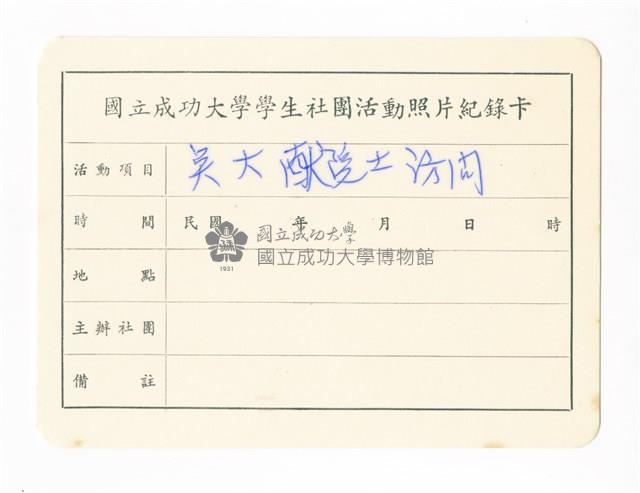 國立成功大學學生社團活動照片紀錄卡
活動項目 吳大猷院士訪問
時間 民國 年 月 日 時
國立成功大學
國立成功大學博物館
1931
地點
主辦社團
備註